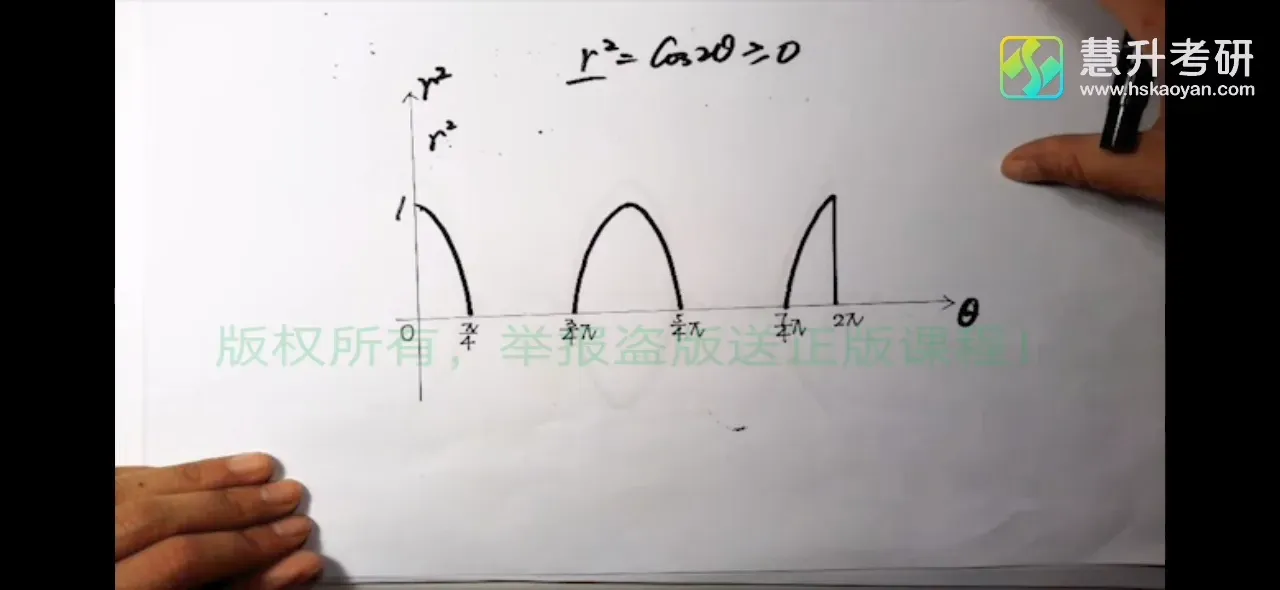 r² = Cos2θ ≥ 0
慧升考研
www.hskaoyan.com
r²
r²
1
0 π/4 3/4π 5/4π 7/4π 2π θ
版权所有，举报盗版送正版课程！